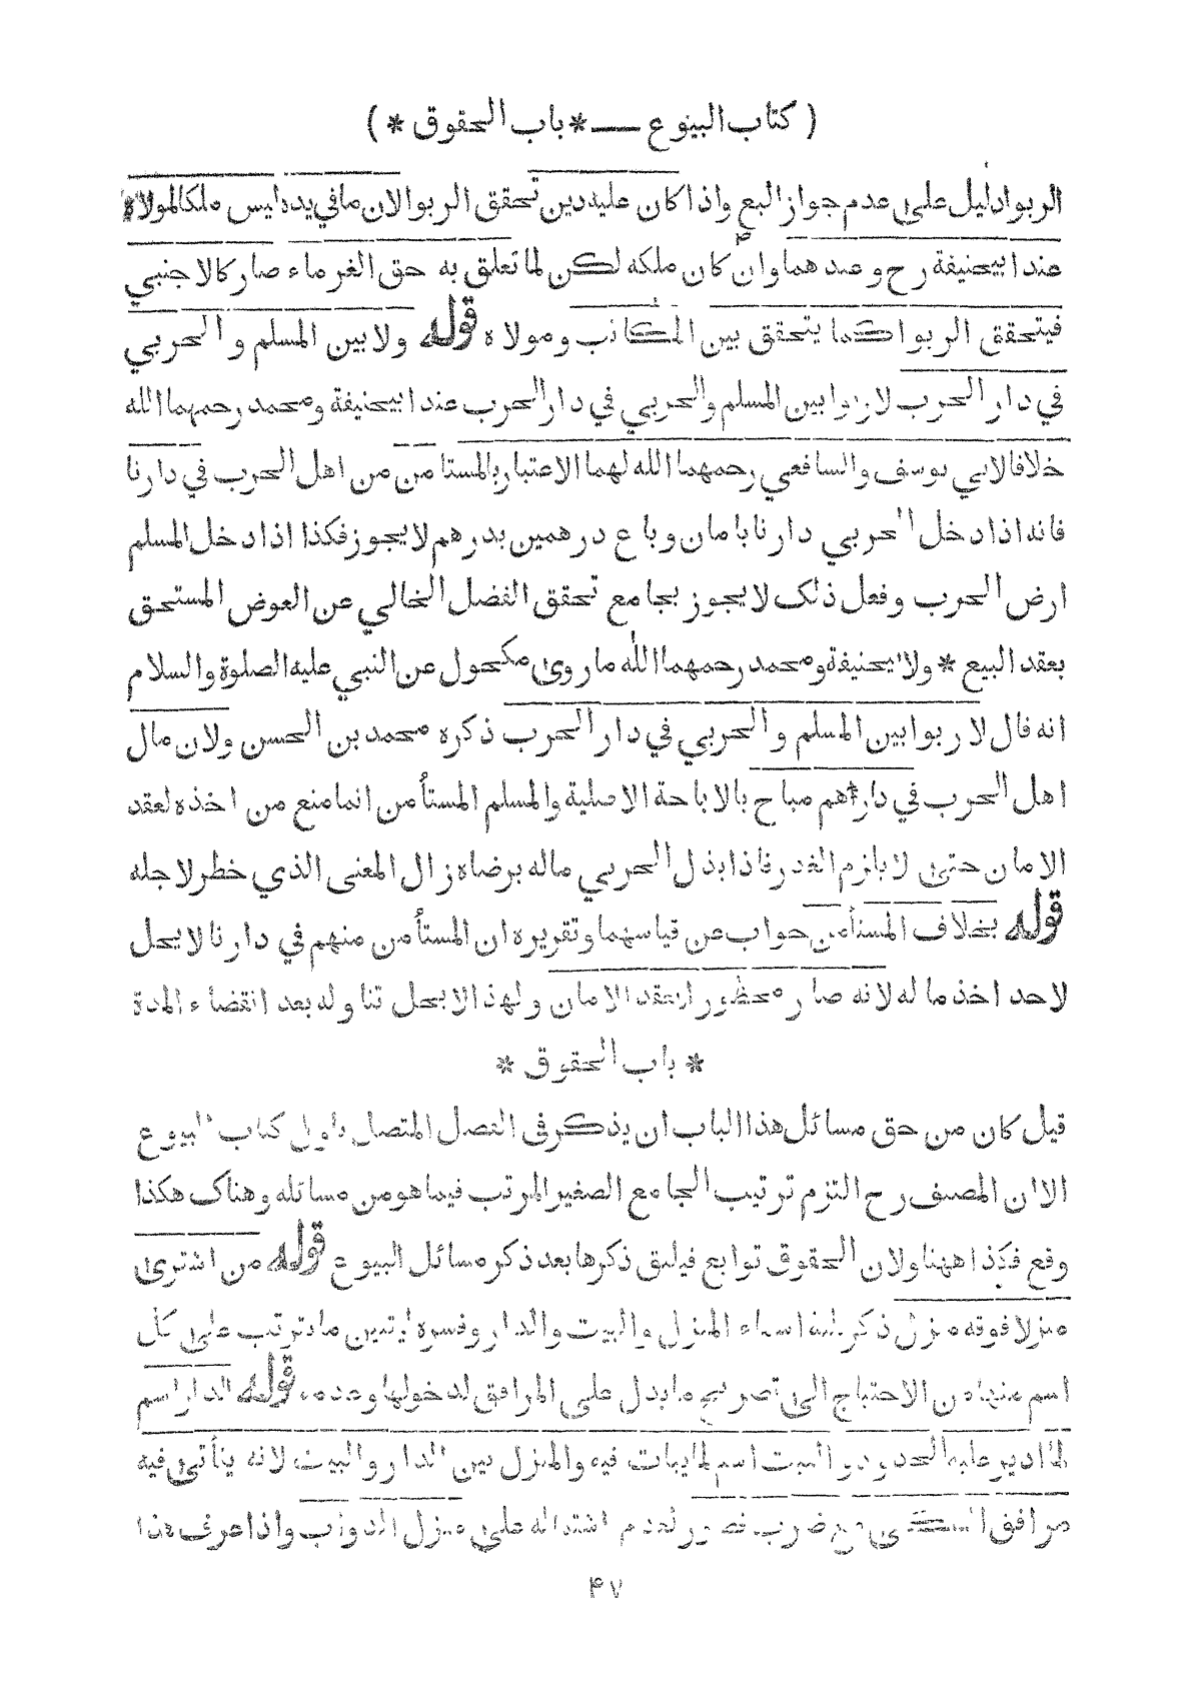 ( كتاب البيوع — * باب الحقوق * )
الربوا دليل على عدم جواز البيع واذا كان عليه دين تحقق الربوا لان ما في يده ليس ملكا لمولاه
عند ابيحنيفة رح وعندهما وان كان ملكه لكن لما تعلق به حق الغرماء صار كالاجنبي
فيتحقق الربوا كما يتحقق بين المكاتب ومولاه قوله ولا بين المسلم والحربي
في دار الحرب لا ربوا بين المسلم والحربي في دار الحرب عند ابيحنيفة ومحمد رحمهما الله
خلافا لابي يوسف والشافعي رحمهما الله لهما الاعتبار بالمستامن من اهل الحرب في دارنا
فانه اذا دخل الحربي دارنا بامان وباع درهمين بدرهم لا يجوز فكذا اذا دخل المسلم
ارض الحرب وفعل ذلك لا يجوز بجامع تحقق الفضل الخالي عن العوض المستحق
بعقد البيع * ولابيحنيفة ومحمد رحمهما الله ما روى مكحول عن النبي عليه الصلوة والسلام
انه قال لا ربوا بين المسلم والحربي في دار الحرب ذكره محمد بن الحسن ولان مال
اهل الحرب في دارهم مباح بالاباحة الاصلية والمسلم المستأمن انما منع من اخذه لعقد
الامان حتى لا يلزم الغدر فاذا بذل الحربي ماله برضاه زال المعنى الذي خطر لاجله
قوله بخلاف المستأمن جواب عن قياسهما وتقريره ان المستأمن منهم في دارنا لا يحل
لاحد اخذ ماله لانه صار محظورا بعقد الامان ولهذا لا يحل تناوله بعد انقضاء المدة
* باب الحقوق *
قيل كان من حق مسائل هذا الباب ان يذكر في الفصل المتصل باول كتاب البيوع
الا ان المصنف رح التزم ترتيب الجامع الصغير المرتب فيما هو من مسائله وهناك هكذا
وقع فكذا ههنا ولان الحقوق توابع فيليق ذكرها بعد ذكر مسائل البيوع قوله من اشترى
منزلا فوقه منزل ذكر ثلثة اسماء المنزل والبيت والدار وفسره ليتبين ما يترتب على كل
اسم منها من الاحتياج الى تصريح ما يدل على المرافق لدخولها وعدمه قوله الدار اسم
لما ادير عليه الحدود والبيت اسم لما يبات فيه والمنزل بين الدار والبيت لانه يتأتى فيه
مرافق السكنى مع ضرب قصور لعدم اشتماله على منزل الدواب واذا عرف هذا
۴۷